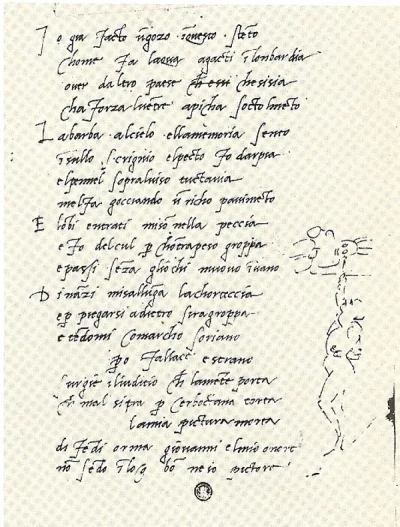 I o gia facto ũgozo ĩquesto stẽto
chome fa lacqua agacti ĩlonbardia
over daltro paese chessi chesisia
cha forza lvẽtre apicha socto lmẽto
L a barba alcielo ellamemoria sento
ĩsullo scrignio elpecto fo darpia
elpennel sopralviso tuctavia
melfa gocciando ũ richo pavimẽto
E lõbi entrati miso nella peccia
e fo delcul p chõtrapeso groppa
e passi sẽza gliochi muovo ĩvano
D inãzi misallũga lachorteccia
e p piegarsi adietro siragroppa
e tẽdomi comarcho soriano
po fallace e strano
surgie iliudicio ch lamẽte porta
ch mal sitra p cerboctana torta
lamia pictura morta
difẽdi orma giovanni elmio onore
nõ sẽdo ĩlog bõ ne io pictore